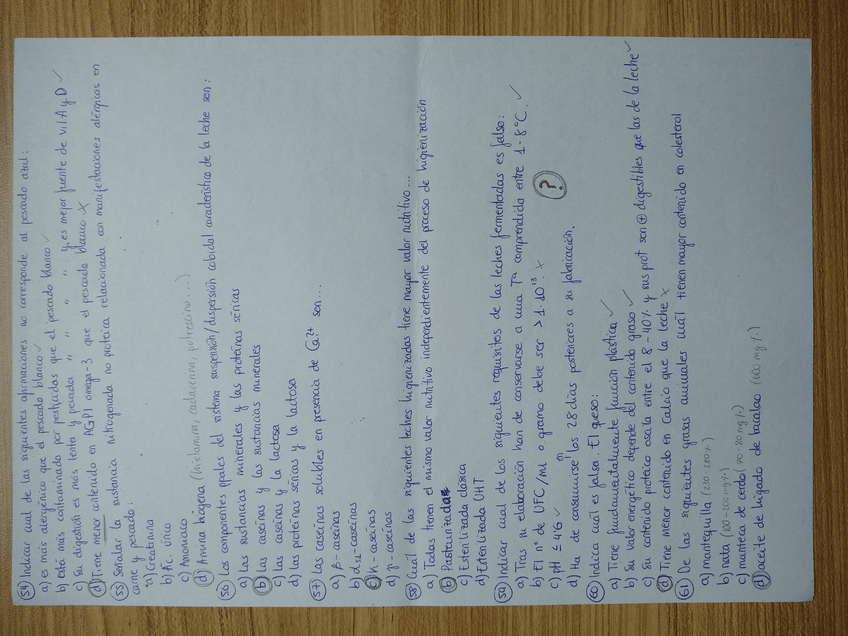 54) Indicar cual de las siguientes afirmaciones no corresponde al pescado azul:
a) es más alergénico que el pescado blanco ✓
b) está más contaminado por pesticidas que el pescado blanco ✓
c) su digestión es más lenta y pesada " " " " y es mejor fuente de vit A y D ✓
d) Tiene menor contenido en AGPI omega-3 que el pescado blanco x
55) Señalar la sustancia nitrogenada no proteica relacionada con manifestaciones alérgicas en
carne y pescado:
a) Creatinina
b) Ác. úrico
c) Amoniaco
d) Amina biógena (histamina, cadaverina, putrescina...)
56) Los componentes ppales del sistema suspensión/dispersión coloidal característico de la leche son:
a) Las sustancias minerales y las proteínas séricas
b) Las caseínas y las sustancias minerales
c) Las caseínas y la lactosa
d) Las proteínas séricas y la lactosa
57) Las caseínas solubles en presencia de Ca2+ son...
a) β-caseínas
b) αs2-caseínas
c) K-caseínas
d) γ-caseínas
58) Cuál de las siguientes leches higienizadas tiene mayor valor nutritivo...
a) Todas tienen el mismo valor nutritivo independientemente del proceso de higienización
b) Pasteurizadas
c) Esterilizada clásica
d) Esterilizada UHT
59) Indicar cual de los siguientes requisitos de las leches fermentadas es falso:
a) Tras su elaboración han de conservarse a una Tª comprendida entre 1-8°C. ✓
b) El nº de UFC/ml o gramo debe ser > 1·10¹³. x
c) pH ≤ 4'6 ✓
d) Ha de consumirse en los 28 días posteriores a su fabricación. (?)
60) Indica cuál es falsa. El queso:
a) Tiene fundamentalmente función plástica ✓
b) Su valor energético depende del contenido graso ✓
c) Su contenido proteico oscila entre el 8-40% y sus prot son ⊕ digestibles que las de la leche ✓
d) Tiene menor contenido en Calcio que la leche x
61) De las siguientes grasas animales cuál tienen mayor contenido en colesterol
a) mantequilla (230-280%)
b) nata (100-100 mg%)
c) manteca de cerdo (70-80 mg%)
d) aceite de hígado de bacalao (600 mg%)